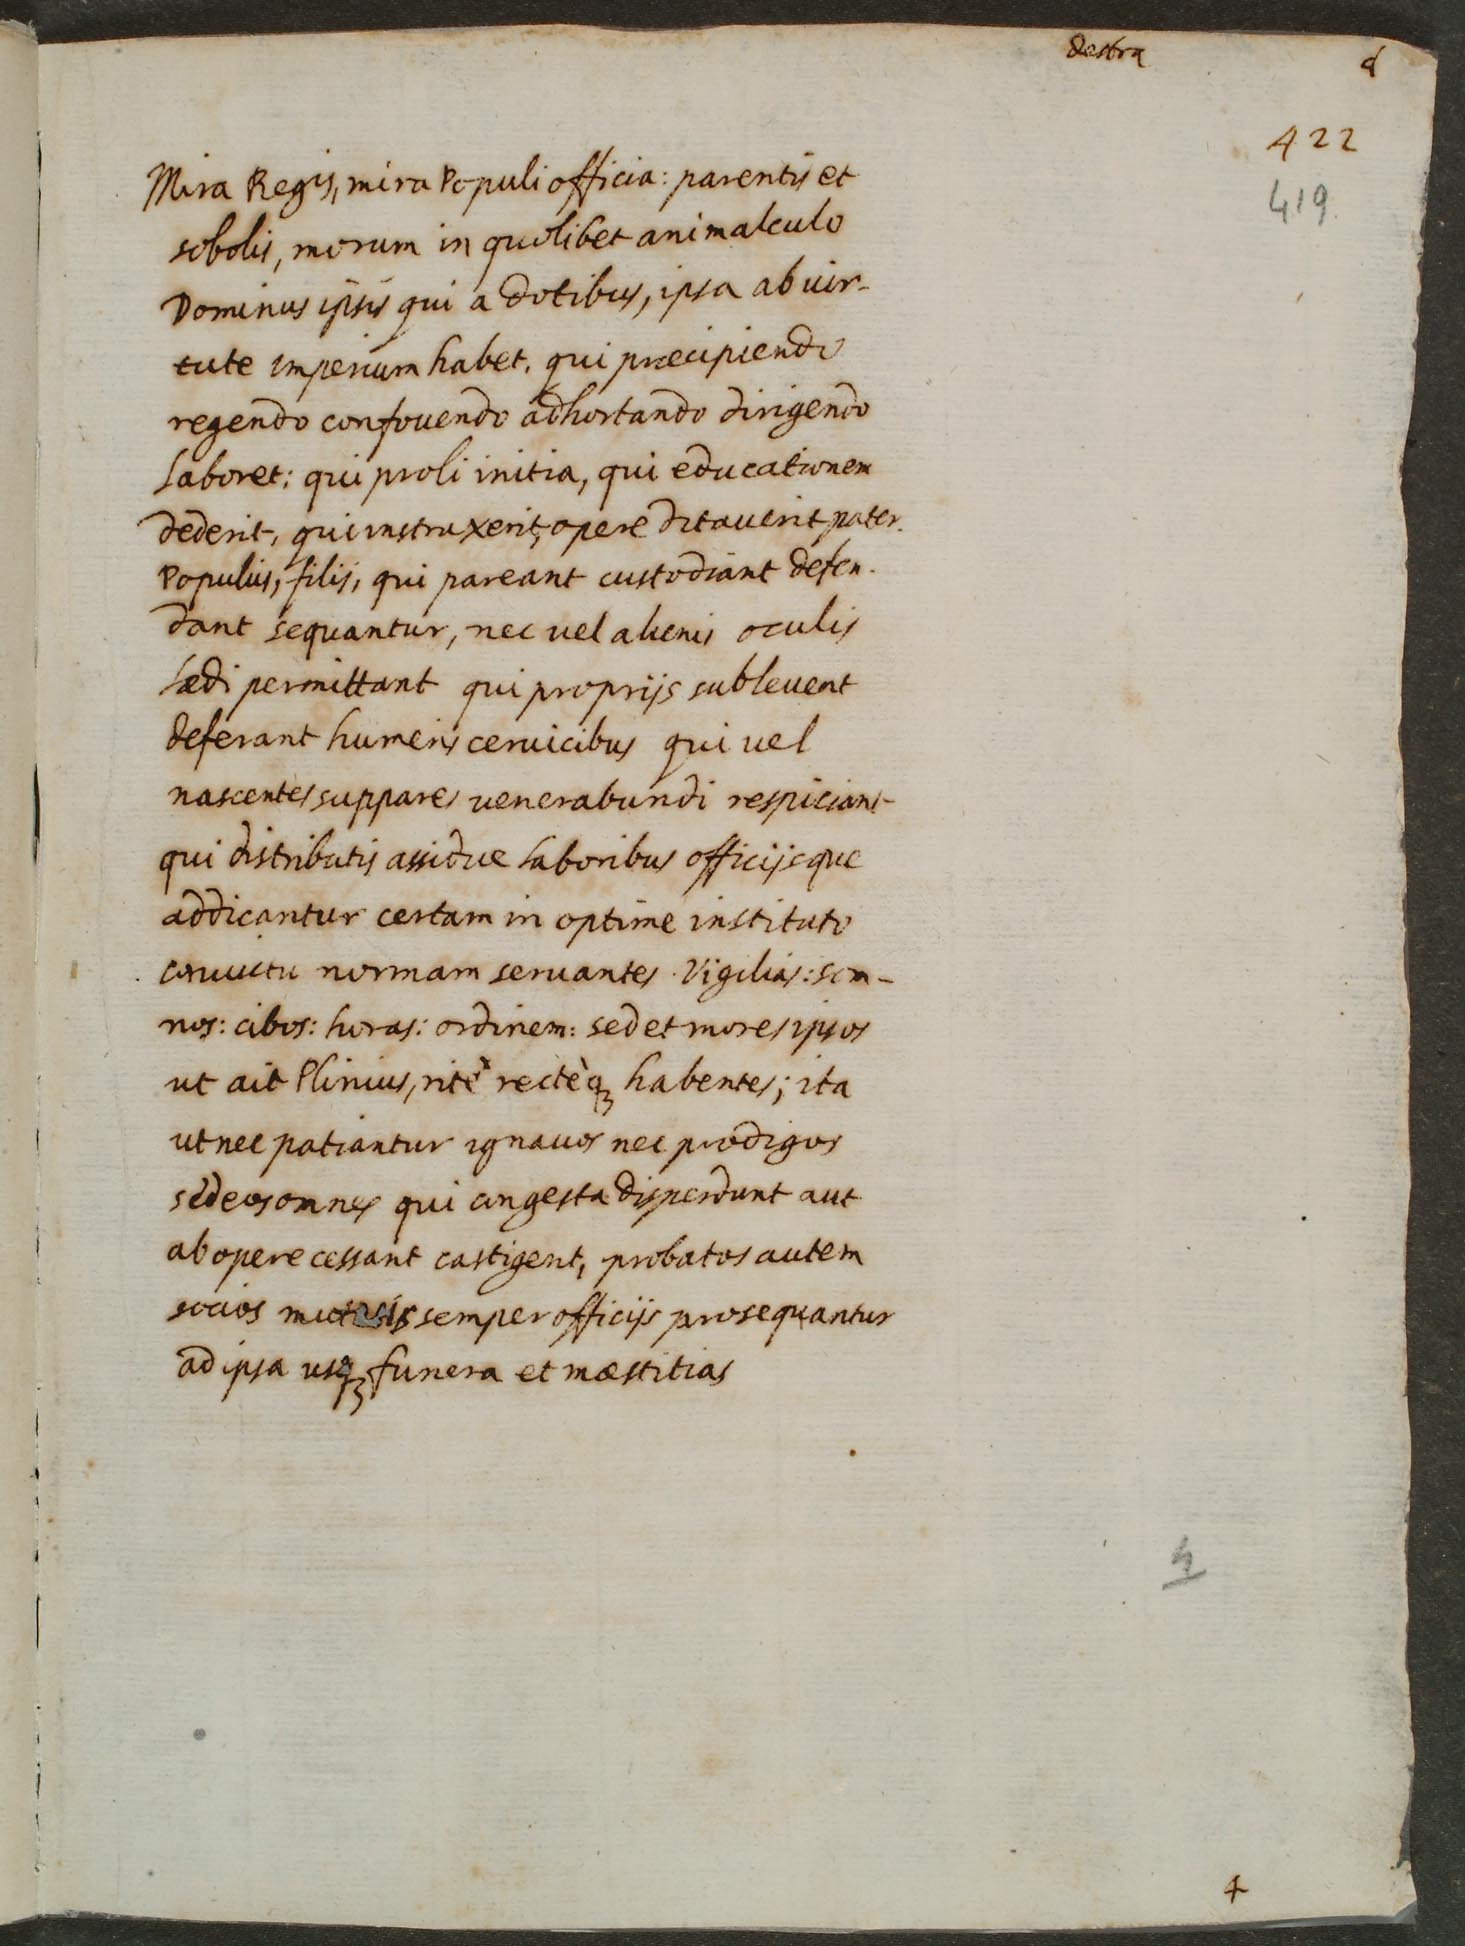 destra
d
422
419
Mira Regis, mira Populi officia: parentis et
sobolis, morum in quolibet animalculo
Dominus ipsis qui a dotibus, ipsa ab uir-
tute imperium habet, qui præcipiendo
regendo confouendo adhortando dirigendo
laboret: qui proli initia, qui educationem
dederit, qui instruxerit, opere ditauerit pater.
Populus, filij, qui pareant custodiant defen-
dant sequantur, nec uel alienis oculis
lædi permittant qui proprijs subleuent
deferant humeris ceruicibus qui uel
nascentes suppares uenerabundi respiciant
qui distributis assidue laboribus officijsque
addicantur certam in optime instituto
conuictu normam seruantes. Vigilias: som-
nos: cibos: horas: ordinem: sed et mores ipsos
ut ait Plinius, ritè rectèq; habentes; ita
ut nec patiantur ignauos nec prodigos
sed eos omnes qui congesta disperdunt aut
ab opere cessant castigent, probatos autem
socios mutuis semper officijs prosequantur
ad ipsa usq; funera et mæstitias
4
4